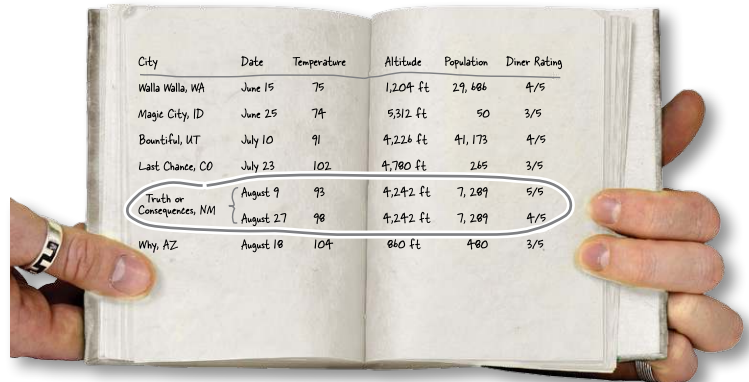 City Date Temperature Altitude Population Diner Rating
Walla Walla, WA June 15 75 1,204 ft 29,686 4/5
Magic City, ID June 25 74 5,312 ft 50 3/5
Bountiful, UT July 10 91 4,226 ft 41,173 4/5
Last Chance, CO July 23 102 4,780 ft 265 3/5
Truth or Consequences, NM August 9 93 4,242 ft 7,289 5/5
August 27 98 4,242 ft 7,289 4/5
Why, AZ August 18 104 860 ft 480 3/5